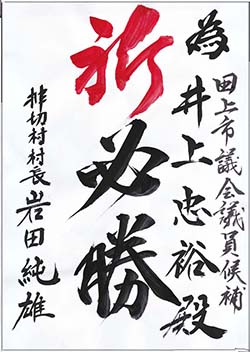 為
田上市議会議員候補
井上忠裕殿
祈必勝
切村村長
岩田純雄